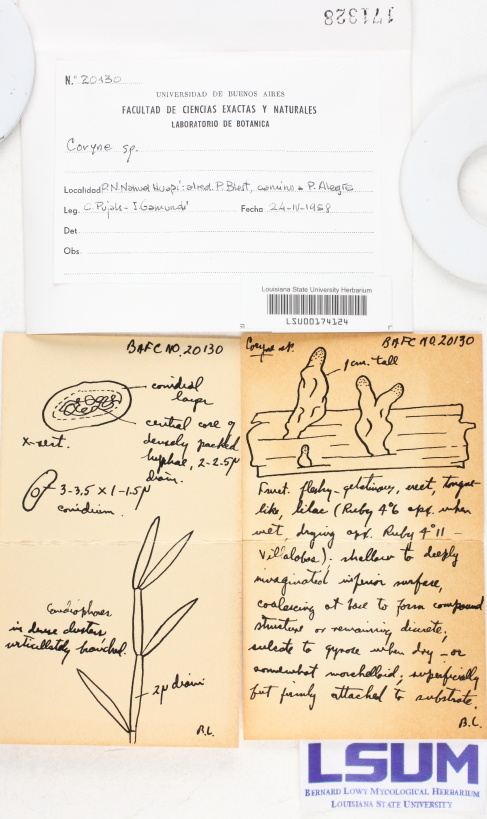 171328
N.º 20130
UNIVERSIDAD DE BUENOS AIRES
FACULTAD DE CIENCIAS EXACTAS Y NATURALES
LABORATORIO DE BOTANICA
Coryne sp.
Localidad P.N. Nahuel Huapi: alred. P. Blest, camino a P. Alegre
Leg. C. Pujals - I. Gamundi Fecha 24-IV-1958
Det.
Obs.
Louisiana State University Herbarium
LSU00174124
BAFC NO. 20130
conidial
layer
central core of
densely packed
hyphae, 2-2.5µ
diam.
x-sect.
3-3.5 x 1-1.5µ
conidium.
Conidiophores
in dense clusters
verticillately branched.
2µ diam
B.L.
Coryne sp. BAFC NO. 20130
1 cm. tall
Fruct. fleshy-gelatinous, erect, tongue-
like, lilac (Ruby 4°6 apx. when
wet, drying apx. Ruby 4°11 -
Villalobos); shallow to deeply
invaginated inferior surface,
coalescing at base to form compound
structure or remaining discrete;
sulcate to gyrose when dry - or
somewhat morchelloid; superficially
but firmly attached to substrate.
B.L.
LSUM
BERNARD LOWY MYCOLOGICAL HERBARIUM
LOUISIANA STATE UNIVERSITY